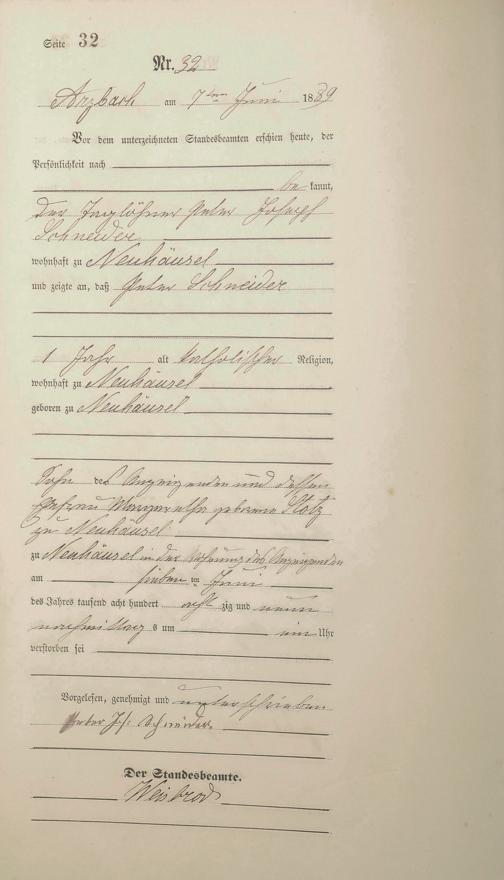 Seite 32
Nr. 32
Arzbach am 7ten Juni 1889
Vor dem unterzeichneten Standesbeamten erschien heute, der
Persönlichkeit nach
be kannt,
der Taglöhner Peter Joseph
Schneider
wohnhaft zu Neuhäusel
und zeigte an, daß Peter Schneider
1 Jahr alt katholischer Religion,
wohnhaft zu Neuhäusel
geboren zu Neuhäusel
Sohn des Anzeigenden und dessen
Ehefrau Margarethe geborene
zu Neuhäusel
zu Neuhäusel in der Wohnung des Anzeigenden
am sieben ten Juni
des Jahres tausend acht hundert acht zig und neun
nachmittag s um ein Uhr
verstorben sei
Vorgelesen, genehmigt und unterschrieben
Peter Jos. Schneider
Der Standesbeamte.
Weisbrod